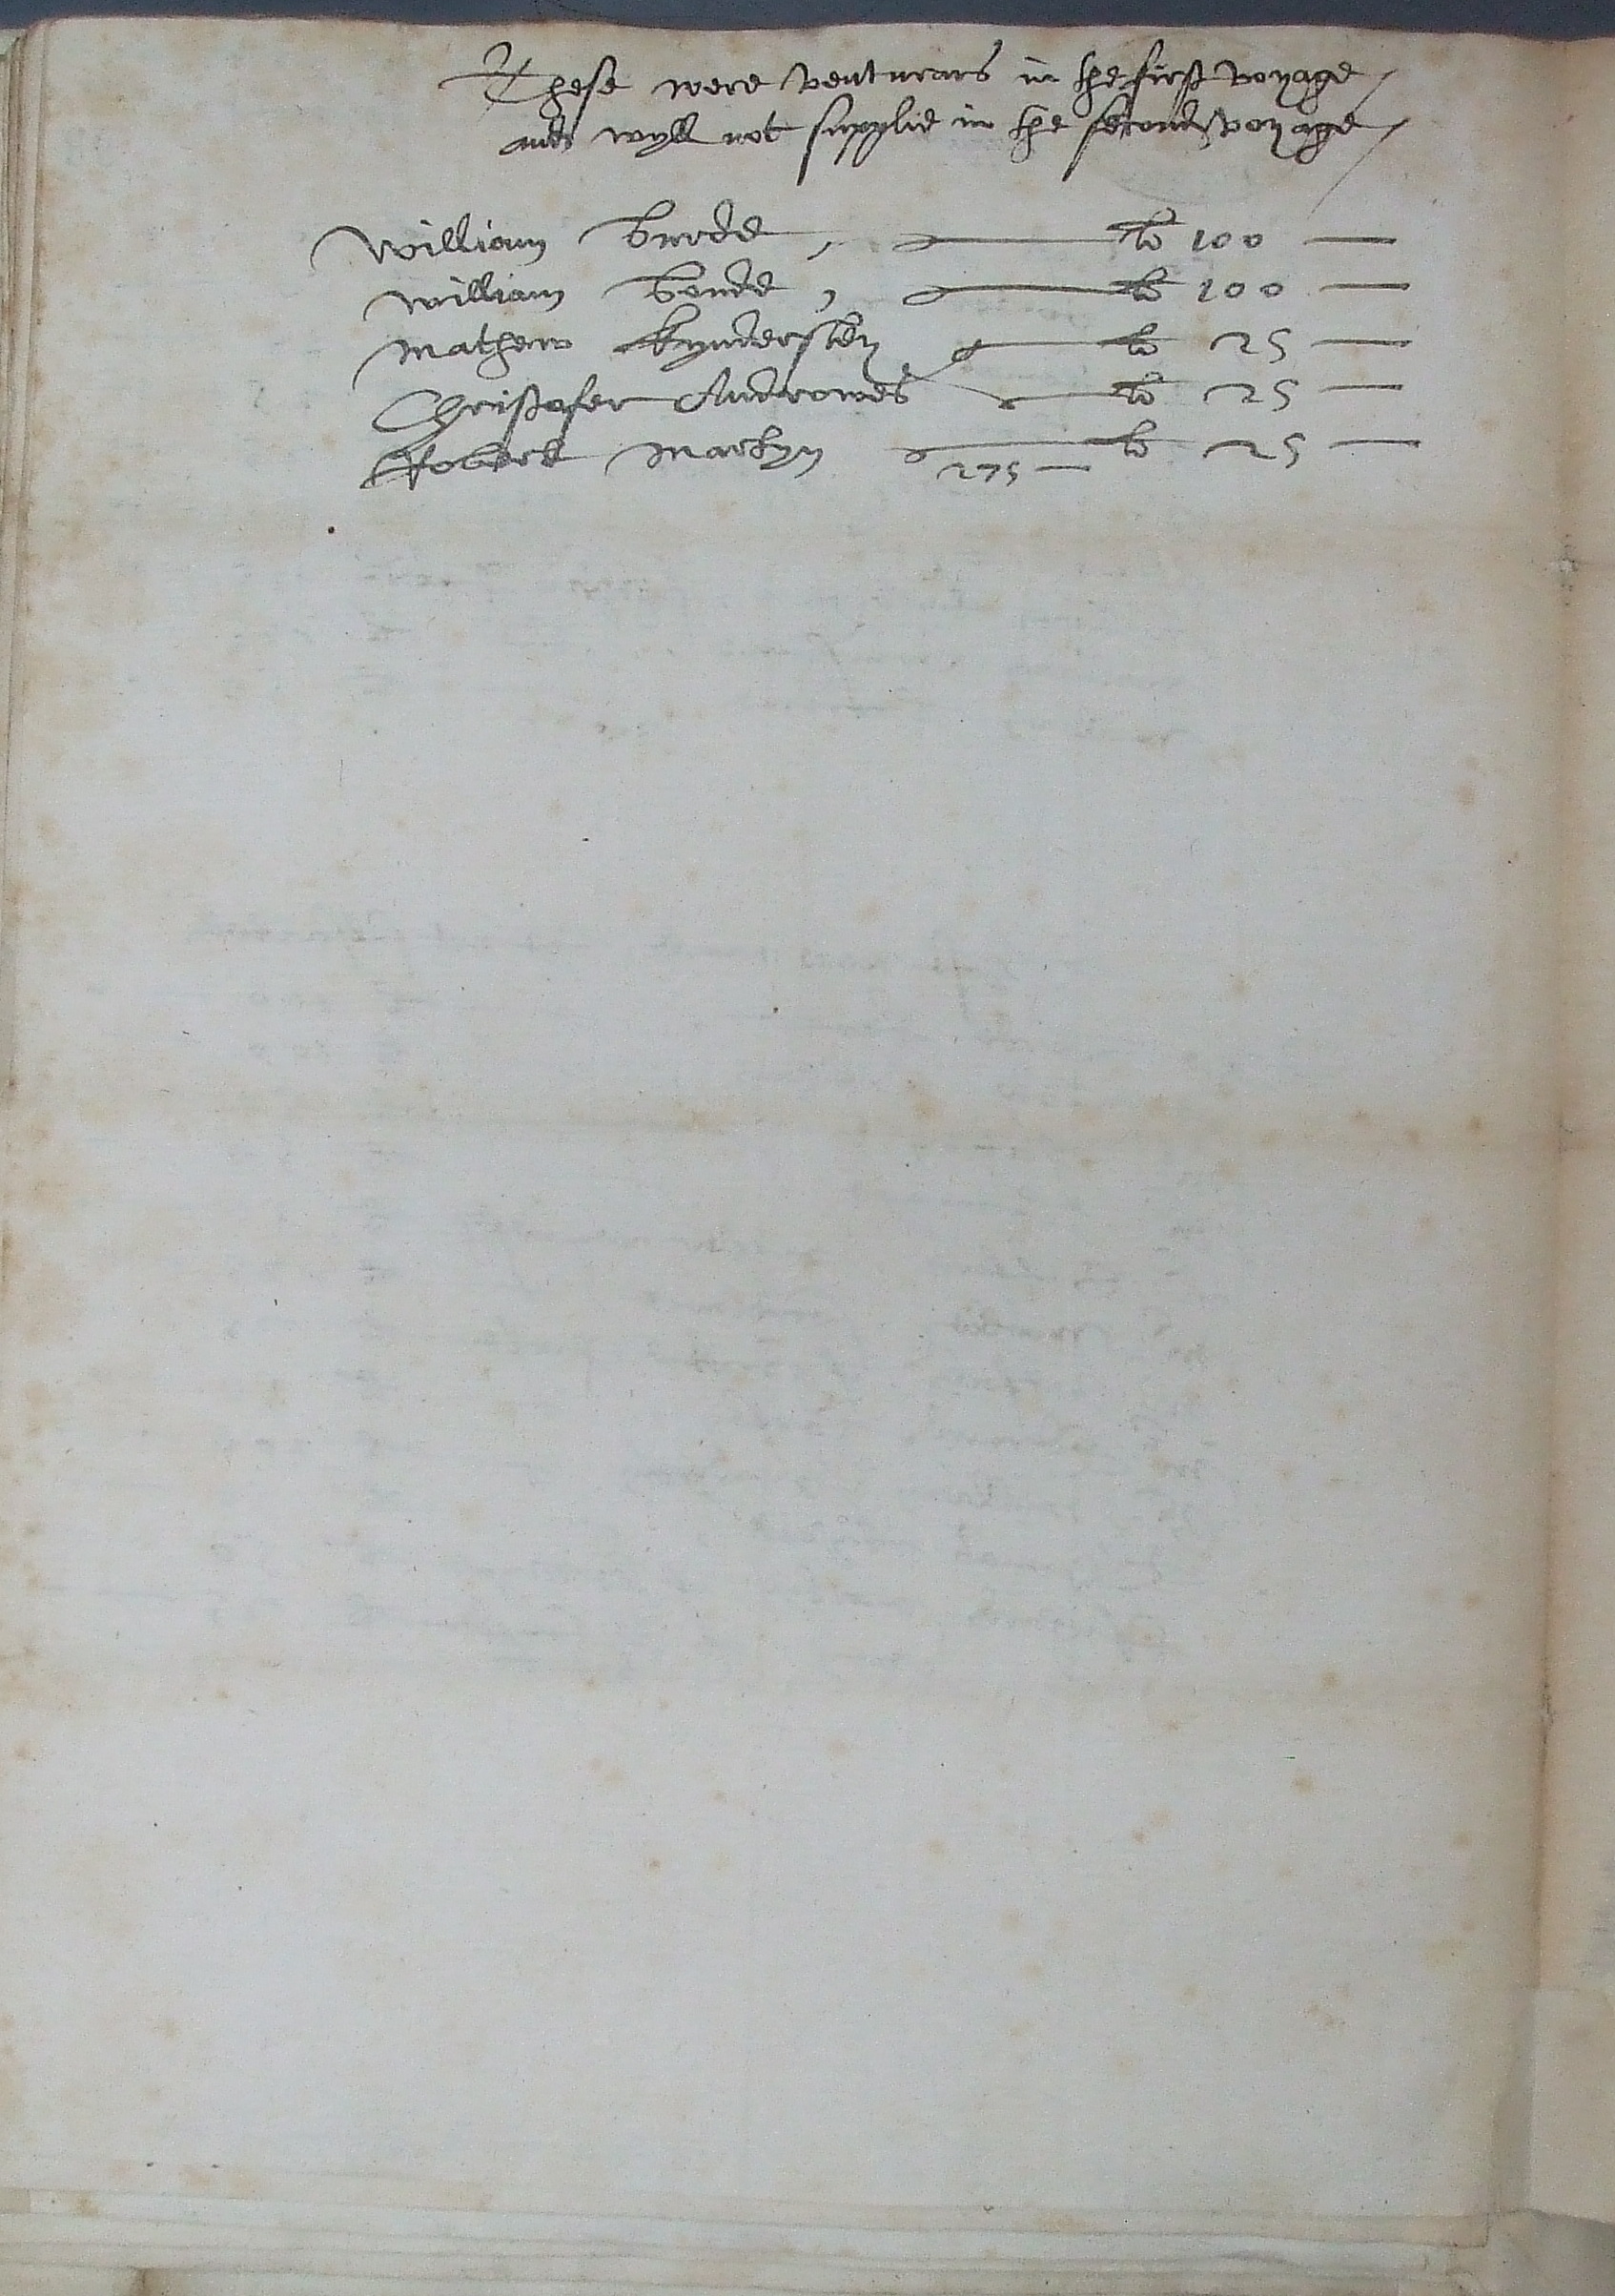 These were venturars in the first voyage /
and wyll not supplie in the second voyage /
William Burde , —— li 100 —
William Bonde , —— li 100 —
Mathew Kyndersley —— li 25 —
Christofer Androwes —— li 25 —
Robert Martyn —— li 25 —
275 —